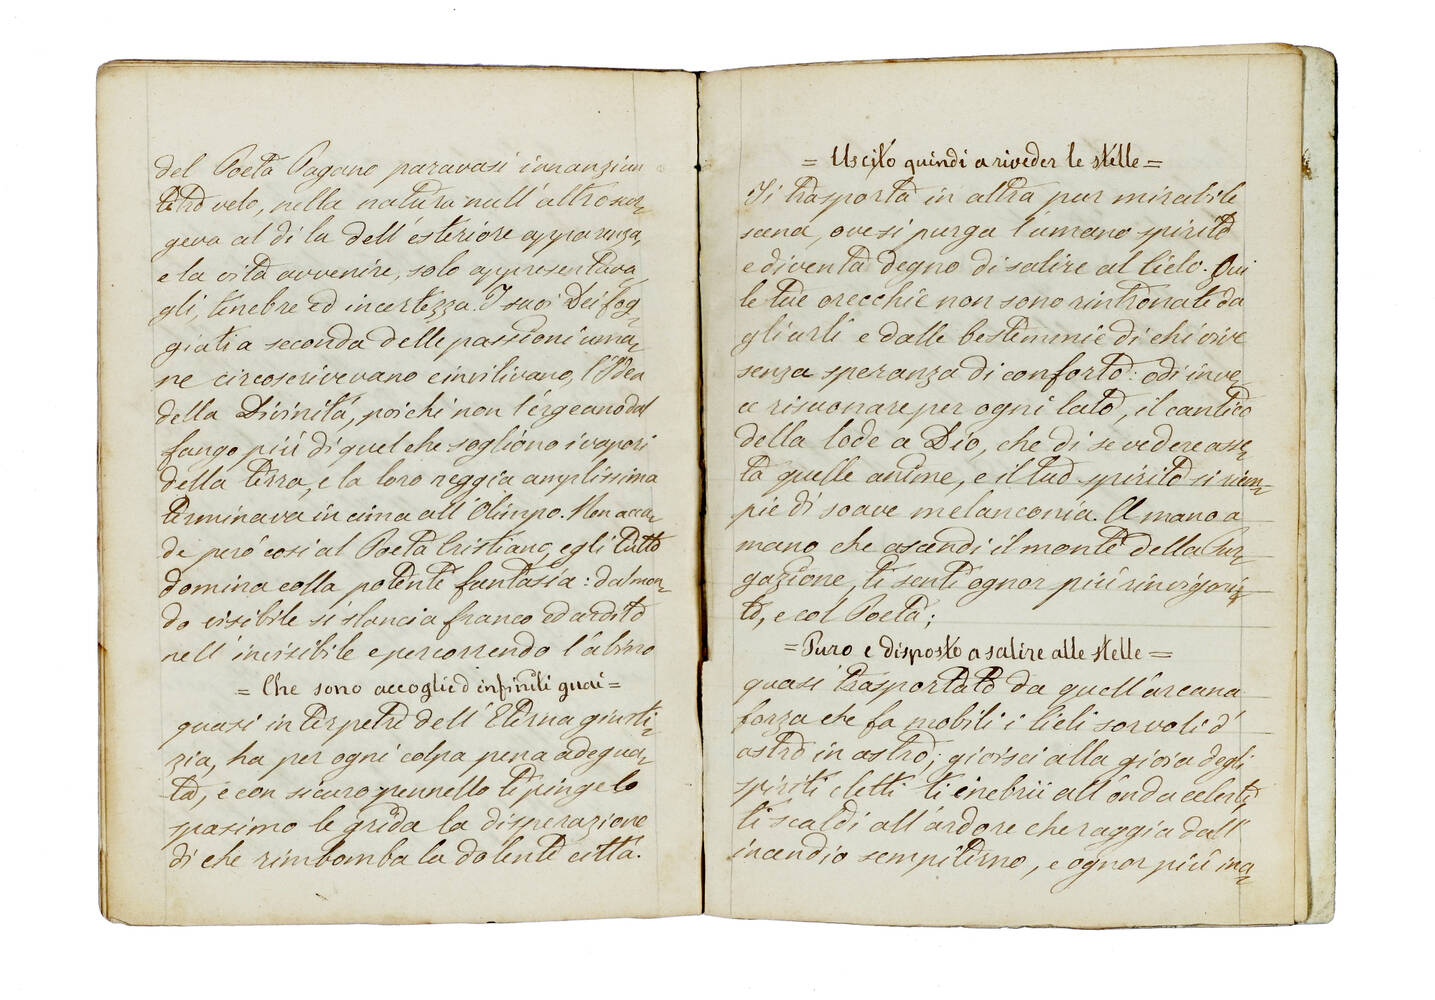 del Poeta Pagano paravasi innanzi un
tetro velo, nella natura null'altro scor-
geva al di la dell'esteriore apparenza,
e la vita avvenire, solo appresentava-
gli, tenebre ed incertezza. I suoi Dei fog-
giati a seconda delle passioni uma-
ne circoscrivevano e invilivano, l'Idea
della Divinitá, poiché non l'ergeano dal
fango piú di quel che sogliono i vapori
della terra, e la loro reggia amplissima
terminava in cima all'Olimpo. Non acca-
de peró cosi al Poeta Cristiano, egli tutto
domina colla potente fantasia: dal mon-
do visibile si slancia franco ed ardito
nell'invisibile e percorrendo l'abisso
= Che sono accoglie d'infiniti guai =
quasi interpetre dell'Eterna giusti-
zia, ha per ogni colpa pena adegua-
ta, e con sicuro pennello ti pinge lo
spasimo le grida la disperazione
di che rimbomba la dolente cittá.
= Uscito quindi a riveder le stelle =
Ti trasporta in altra pur mirabile
scena, ove si purga l'umano spirito
e diventa degno di salire al Cielo. Qui
le tue orecchie non sono rintronate da
gli urli e dalle bestemmie di chi vive
senza speranza di conforto: odi inve-
ce risuonare per ogni lato, il cantico
della lode a Dio, che di se vedere asse-
ta quelle anime, e il tuo spirito si riem-
pie di soave melanconia. A mano a
mano che ascendi il monte della Pur-
gazione, ti senti ognor piú rinvigori-
to, e col Poeta;
= Puro e disposto a salire alle stelle =
quasi trasportato da quell'arcana
forza che fa mobili i Cieli sorvoli d'
astro in astro; gioisci alla gioia degli
spiriti eletti ti inebrii all'onda celeste,
ti scaldi all'ardore che raggia dall'
incendio sempiterno, e ognor piú ina-